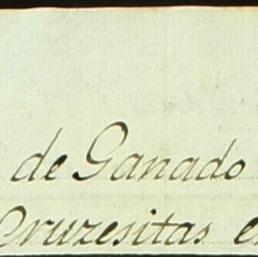 de Ganado
Cruzesitas e